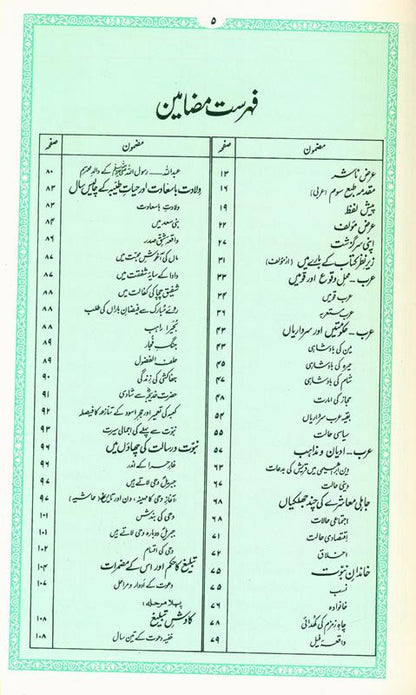 ۵
فہرست مضامین
مضمون صفحہ
عرض ناشر ۱۳
مقدمہ طبع سوم (عربی) ۱۶
پیش لفظ ۱۹
عرض مؤلف ۲۲
اپنی سرگزشت ۲۷
زیر نظر کتاب کے بارے میں (از مؤلف) ۳۱
عرب - محل وقوع اور قومیں ۳۳
عرب قومیں ۳۴
عرب مستعربہ ۳۹
عرب - حکومتیں اور سرداریاں ۴۴
یمن کی بادشاہی ۴۴
حیرہ کی بادشاہی ۴۵
شام کی بادشاہی ۴۷
حجاز کی امارت ۴۸
بقیہ عرب سرداریاں ۵۴
سیاسی حالت ۵۵
عرب - ادیان و مذاہب ۵۷
دین ابراہیمی میں قریش کی بدعات ۶۳
دینی حالت ۶۷
جاہلی معاشرے کی چند جھلکیاں ۶۸
اجتماعی حالات ۶۸
اقتصادی حالت ۷۱
اخلاق ۷۲
خاندان نبوت ۷۵
نسب ۷۵
خانوادہ ۷۶
چاہ زمزم کی کھدائی ۷۸
واقعہ فیل ۷۹
مضمون صفحہ
عبداللہ - رسول اللہ ﷺ کے والد محترم ۸۰
ولادت باسعادت اور حیات طیبہ کے چالیس سال ۸۳
ولادت باسعادت ۸۳
بنی سعد میں ۸۴
واقعہ شق صدر ۸۶
ماں کی آغوش محبت میں ۸۷
دادا کے سایۂ شفقت میں ۸۷
شفیق چچا کی کفالت میں ۸۸
روئے مبارک سے فیضان باراں کی طلب ۸۸
بحیرا راہب ۸۸
جنگ فجار ۸۹
حلف الفضول ۸۹
جفاکشی کی زندگی ۹۰
حضرت خدیجہؓ سے شادی ۹۱
کعبہ کی تعمیر اور حجر اسود کے تنازعہ کا فیصلہ ۹۲
نبوت سے پہلے کی اجمالی سیرت ۹۳
نبوت و رسالت کی چھاؤں میں ۹۶
غار حرا کے اندر ۹۶
جبریلؑ وحی لاتے ہیں ۹۶
آغاز وحی کا مہینہ، دن اور تاریخ (حاشیہ) ۹۷
وحی کی بندش ۱۰۱
جبریلؑ دوبارہ وحی لاتے ہیں ۱۰۱
وحی کی اقسام ۱۰۲
تبلیغ کا حکم اور اس کے مضمرات ۱۰۴
دعوت کے ادوار و مراحل ۱۰۷
پہلا مرحلہ:
کاوش تبلیغ ۱۰۸
خفیہ دعوت کے تین سال ۱۰۸